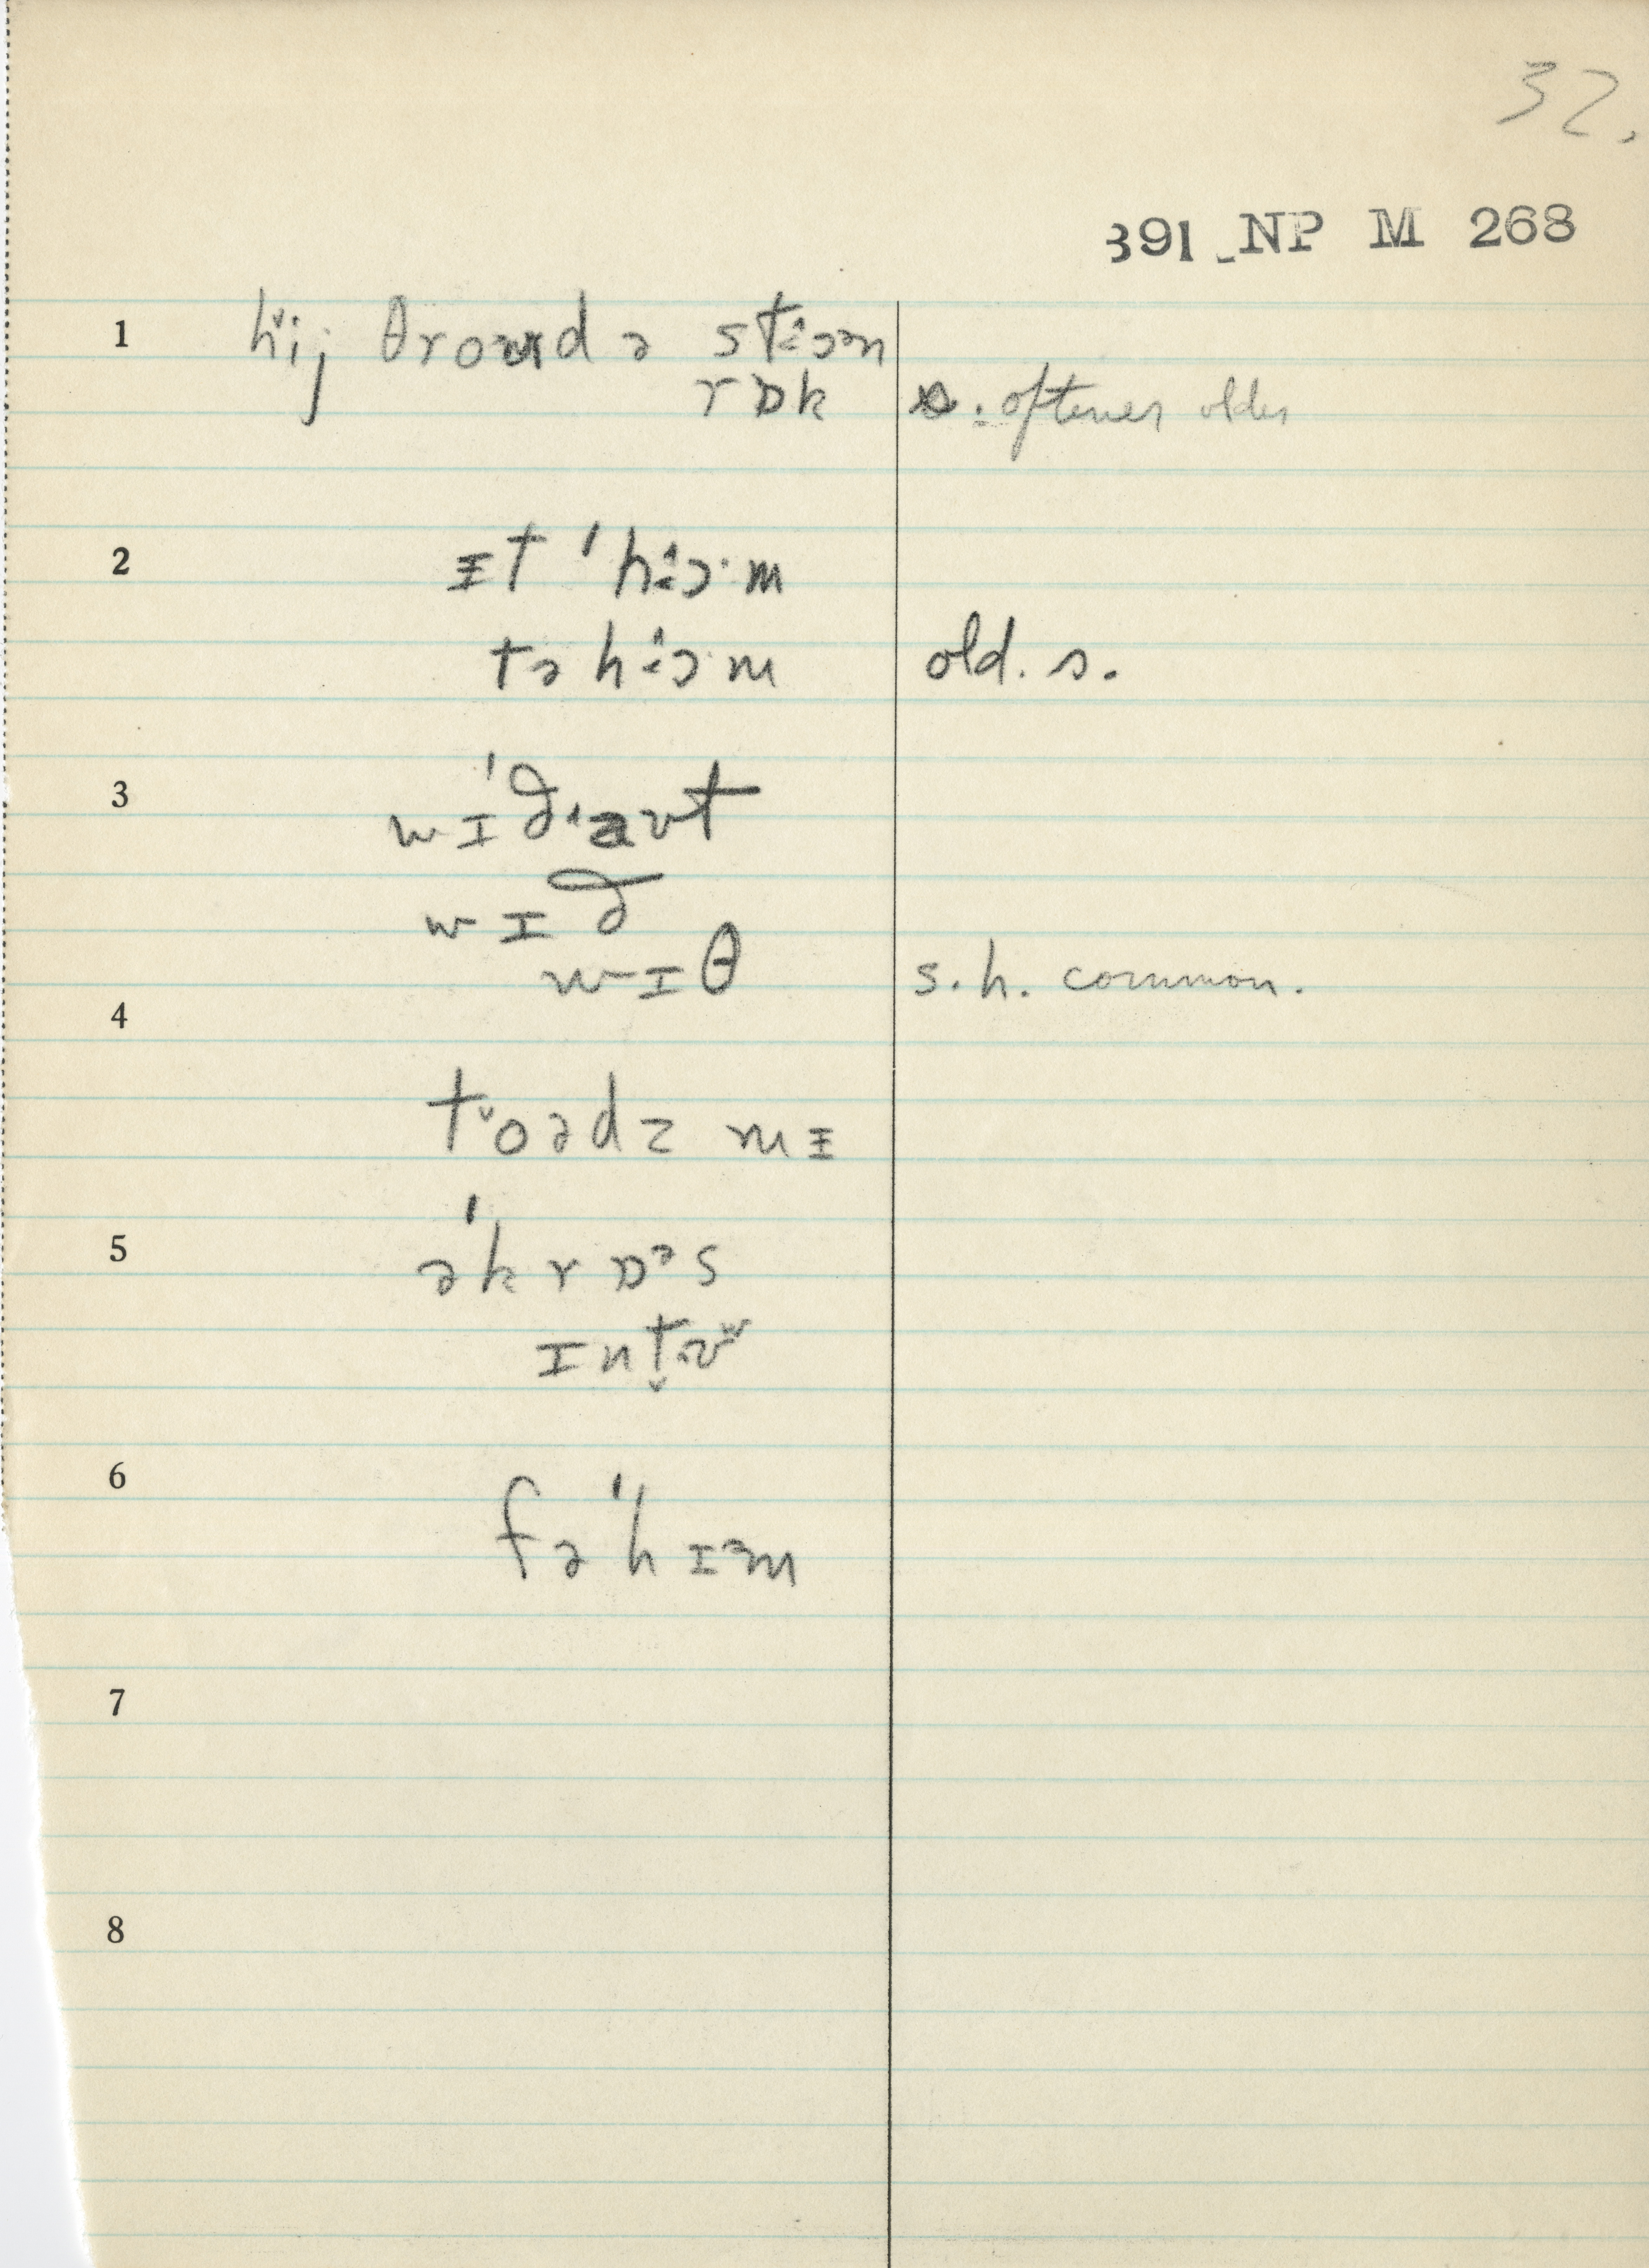 32.
391 NP M 268
1 hi̬j θroəd ə stɔ˄ən
rɒk s. oftener older
2 ᵻt ˈhɔ˄·m
tə hɔ˄·m old. s.
3 wɪˈðaʊt
wɪð
wɪθ s.h. common.
4
to˅ədz mᵻ
5 əˈkrɒᵊs
ɪnt̬ʊʷ
6 fəˈhɪᵊm
7
8